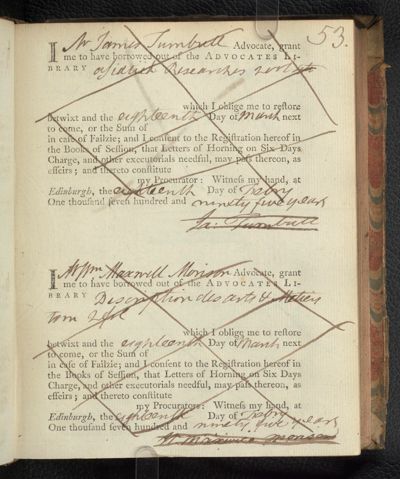 53.
I Mr James Turnbull Advocate, grant
me to have borrowed out of the ADVOCATES LI-
BRARY Asiatick Researches
which I oblige me to restore
betwixt and the eighteenth Day of March next
to come, or the Sum of
in case of Failzie; and I consent to the Registration hereof in
the Books of Session, that Letters of Horning on Six Days
Charge, and other executorials needful, may pass thereon, as
effeirs; and thereto constitute
my Procurator: Witness my hand, at
Edinburgh, the Day of Febry
One thousand seven hundred and ninety five years
Ja: Turnbull
I Mr Wm Maxwell Morison Advocate, grant
me to have borrowed out of the ADVOCATES LI-
BRARY Description des arts & Metiers
tom 2 fol
which I oblige me to restore
betwixt and the eighteenth Day of March next
to come, or the Sum of
in case of Failzie; and I consent to the Registration hereof in
the Books of Session, that Letters of Horning on Six Days
Charge, and other executorials needful, may pass thereon, as
effeirs; and thereto constitute
my Procurator: Witness my hand, at
Edinburgh, the eighteenth Day of Febry
One thousand seven hundred and ninety five years